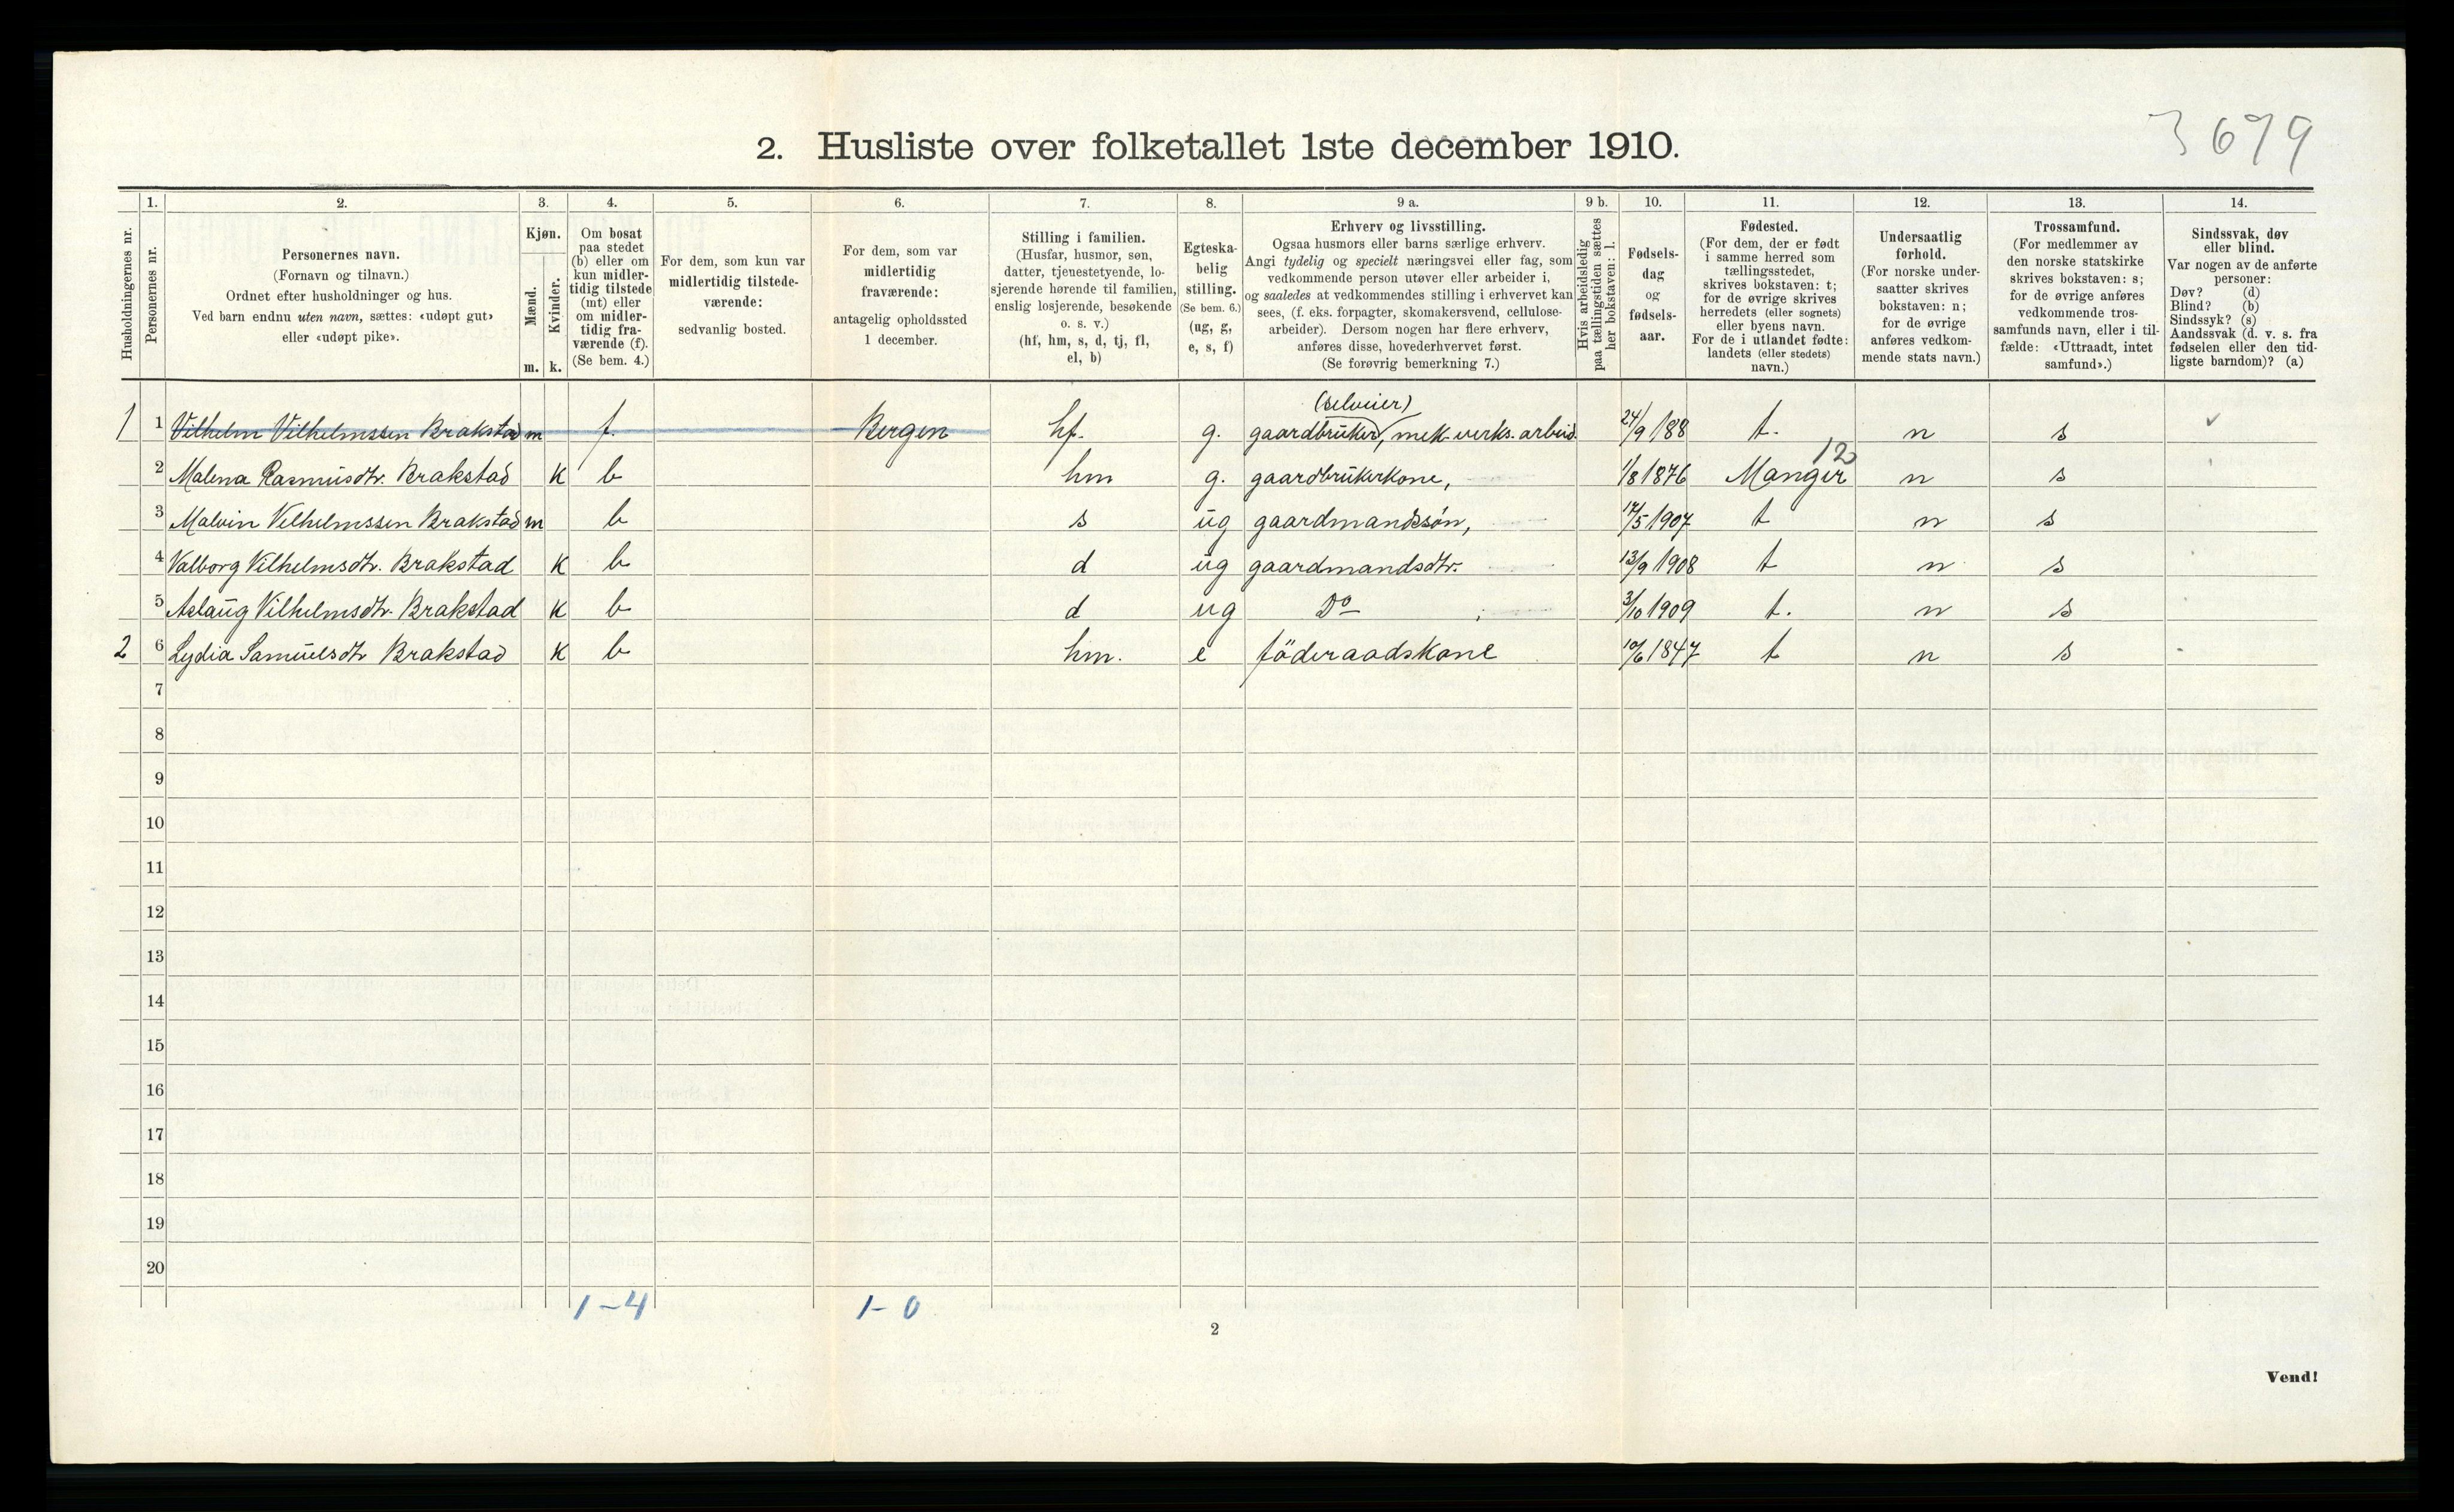 3679
2. Husliste over folketallet 1ste december 1910.
1. 2. 3. 4. 5. 6. 7. 8. 9 a. 9 b. 10. 11. 12. 13. 14.
Husholdningernes nr.
Personernes nr.
Personernes navn.
(Fornavn og tilnavn.)
Ordnet efter husholdninger og hus.
Ved barn endnu uten navn, sættes: «udøpt gut»
eller «udøpt pike».
Kjøn.
Mænd.
Kvinder.
m. k.
Om bosat
paa stedet
(b) eller om
kun midler-
tidig tilstede
(mt) eller
om midler-
tidig fra-
værende (f).
(Se bem. 4.)
For dem, som kun var
midlertidig tilstede-
værende:
sedvanlig bosted.
For dem, som var
midlertidig
fraværende:
antagelig opholdssted
1 december.
Stilling i familien.
(Husfar, husmor, søn,
datter, tjenestetyende, lo-
sjerende hørende til familien,
enslig losjerende, besøkende
o. s. v.)
(hf, hm, s, d, tj, fl,
el, b)
Egteska-
belig
stilling.
(Se bem. 6.)
(ug, g,
e, s, f)
Erhverv og livsstilling.
Ogsaa husmors eller barns særlige erhverv.
Angi tydelig og specielt næringsvei eller fag, som
vedkommende person utøver eller arbeider i,
og saaledes at vedkommendes stilling i erhvervet kan
sees, (f. eks. forpagter, skomakersvend, cellulose-
arbeider). Dersom nogen har flere erhverv,
anføres disse, hovederhvervet først.
(Se forøvrig bemerkning 7.)
Hvis arbeidsledig
paa tællingstiden sættes
her bokstaven: l.
Fødsels-
dag
og
fødsels-
aar.
Fødested.
(For dem, der er født
i samme herred som
tællingsstedet,
skrives bokstaven: t;
for de øvrige skrives
herredets (eller sognets)
eller byens navn.
For de i utlandet fødte:
landets (eller stedets)
navn.)
Undersaatlig
forhold.
(For norske under-
saatter skrives
bokstaven: n;
for de øvrige
anføres vedkom-
mende stats navn.)
Trossamfund.
(For medlemmer av
den norske statskirke
skrives bokstaven: s;
for de øvrige anføres
vedkommende tros-
samfunds navn, eller i til-
fælde: «Uttraadt, intet
samfund».)
Sindssvak, døv
eller blind.
Var nogen av de anførte
personer:
Døv? (d)
Blind? (b)
Sindssyk? (s)
Aandssvak (d. v. s. fra
fødselen eller den tid-
ligste barndom)? (a)
(selveier)
1 1 Vilhelm Vilhelmssen Brakstad m f. Bergen hf. g. gaardbruker, mek. verks. arbeid. 24/9 188 t. n s
12
2 Malena Rasmusdtr. Brakstad k b hm g. gaardbrukerkone, 1/8 1876 Manger n s
3 Malvin Vilhelmssen Brakstad m b s ug gaardmandssøn, 17/5 1907 t n s
4 Valborg Vilhelmsdtr. Brakstad k b d ug gaardmandsdtr. 13/9 1908 t n s
5 Aslaug Vilhelmsdtr. Brakstad k b d ug Do 3/10 1909 t. n s
2 6 Lydia Samuelsdtr Brakstad k b hm. e föderaadskone 10/6 1847 t n s
7
8
9
10
11
12
13
14
15
16
17
18
19
20
1-4 1-0
2
Vend!